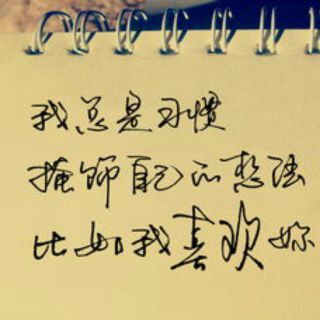 我总是习惯
掩饰自己的想法
比如我喜欢妳